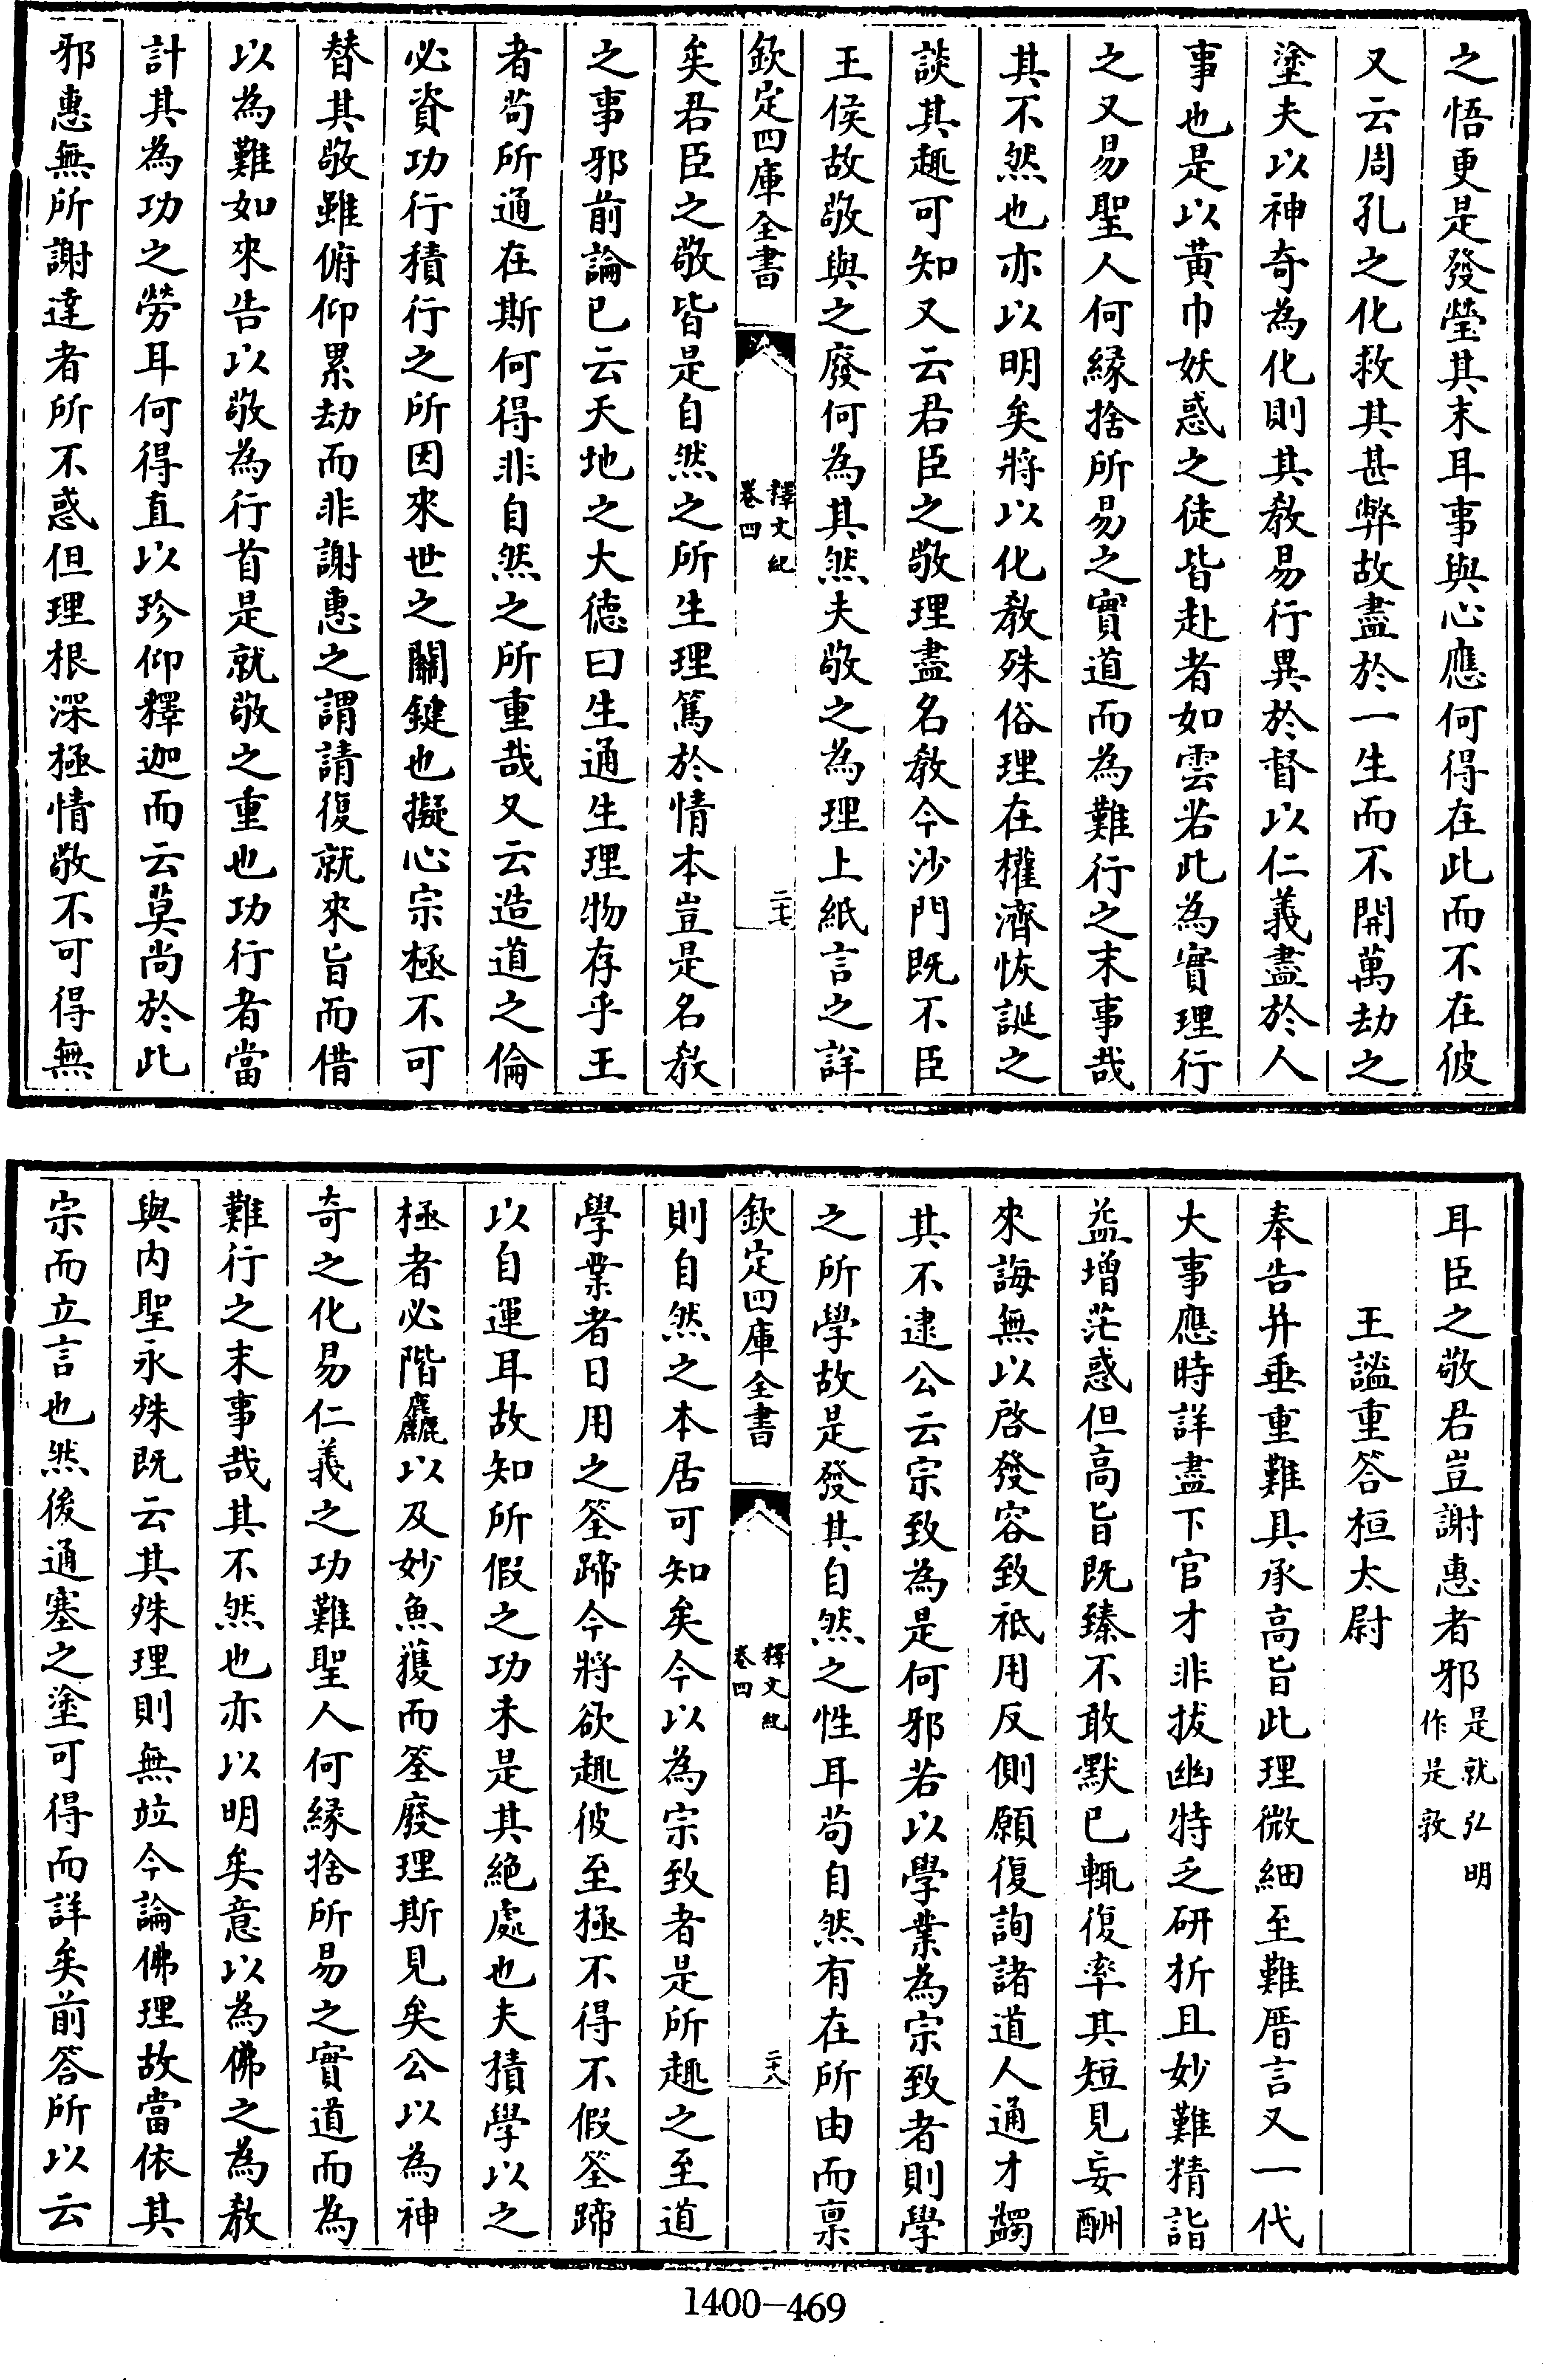 之悟更是發瑩其末耳事與心應何得在此而不在彼
又云周孔之化救其甚弊故盡於一生而不開萬劫之
塗夫以神奇為化則其教易行異於督以仁義盡於人
事也是以黄巾妖惑之徒皆赴者如雲若此為實理行
之又易聖人何縁捨所易之實道而為難行之末事哉
其不然也亦以明矣將以化教殊俗理在權濟恢誕之
談其趣可知又云君臣之敬理盡名教今沙門既不臣
王侯故敬與之廢何為其然夫敬之為理上紙言之詳
欽定四庫全書
釋文紀
卷四
二十七
矣君臣之敬皆是自然之所生理篤於情本豈是名教
之事邪前論已云天地之大德曰生通生理物存乎王
者苟所通在斯何得非自然之所重哉又云造道之倫
必資功行積行之所因來世之關鍵也擬心宗極不可
替其敬雖俯仰累劫而非謝惠之謂請復就來旨而借
以為難如來告以敬為行首是就敬之重也功行者當
計其為功之勞耳何得直以珍仰釋迦而云莫尚於此
邪惠無所謝達者所不惑但理根深極情敬不可得無
耳臣之敬君豈謝惠者邪是就弘明
作是敦
王謐重答桓太尉
奉告并垂重難具承高旨此理微細至難厝言又一代
大事應時詳盡下官才非拔幽特乏研析且妙難精詣
益增茫惑但高旨既臻不敢默已輒復率其短見妄酬
來誨無以啓發容致祗用反側願復詢諸道人通才蠲
其不逮公云宗致為是何邪若以學業為宗致者則學
之所學故是發其自然之性耳苟自然有在所由而稟
欽定四庫全書
釋文紀
卷四
二十八
則自然之本居可知矣今以為宗致者是所趣之至道
學業者日用之筌蹄今將欲趣彼至極不得不假筌蹄
以自運耳故知所假之功未是其絶處也夫積學以之
極者必階麤以及妙魚獲而筌廢理斯見矣公以為神
奇之化易仁義之功難聖人何縁捨所易之實道而為
難行之末事哉其不然也亦以明矣意以為佛之為教
與内聖永殊既云其殊理則無竝今論佛理故當依其
宗而立言也然後通塞之塗可得而詳矣前答所以云
1400-469